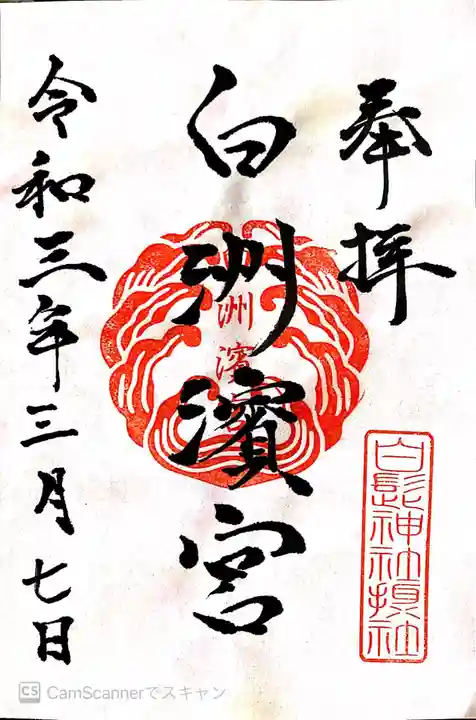 奉拝
白髭神社摂社
白洲濱宮
洲濱
令和三年三月七日
CS CamScannerでスキャン